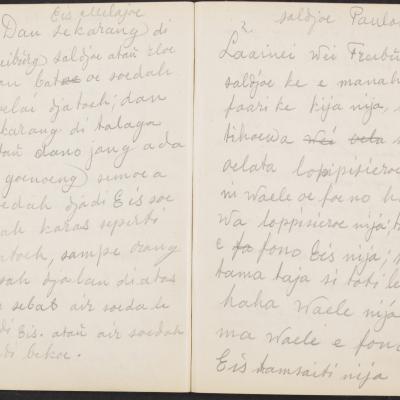 Eis meloeloe
Dan sekarang di
saldjoe ataü
soedah
djatoeh; dan
karang di talaga
dano jang ada
goenoeng) semoea
djadi Eis soe
karas seperti
sampe orang
djalan di atas
sebab air soedah
Eis. ataü air soedah
bekoe.
2. saldjoe Paulo
Laainei Wei Freibü
saldjoe ke e manah
faari ke kija nija,
tihoewa wei oela
oelata loppisieroe
ni waele oe foeno ha
wa loppisieroe nija;
e fa fono Eis nija;
tama taja si toti le
haha Waele nija
ma waele e fono
Eis hamsaiti nija